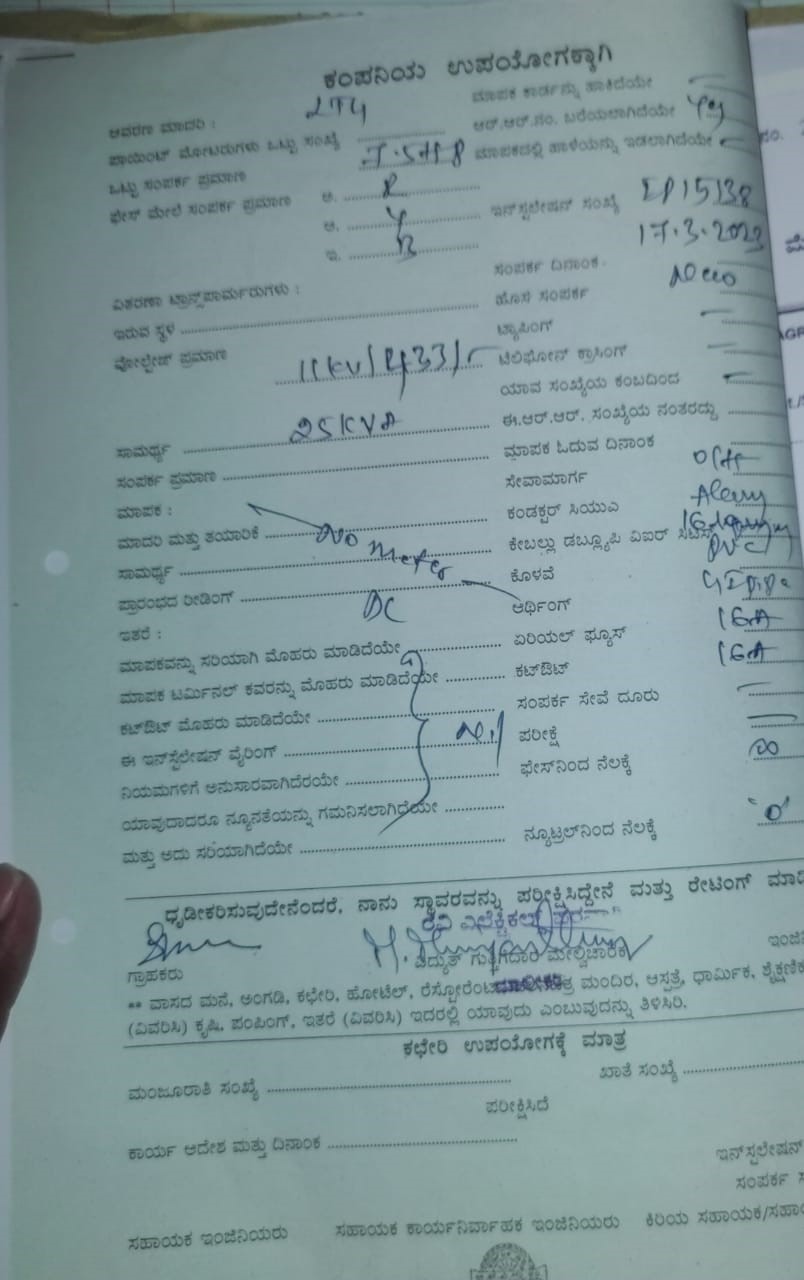 ಕಂಪನಿಯ ಉಪಯೋಗಕ್ಕಾಗಿ
ಆವರಣ ಮಾದರಿ : LT4 ಮಾಪಕ ಕಾರ್ಡನ್ನು ಹಾಕಿದೆಯೇ
ಪಾಯಿಂಟ್ ಮೋಟರುಗಳು ಒಟ್ಟು ಸಂಖ್ಯೆ ಆರ್.ಆರ್.ನಂ. ಬರೆಯಲಾಗಿದೆಯೇ Yes
ಒಟ್ಟು ಸಂಪರ್ಕ ಪ್ರಮಾಣ ಮಾಪಕದಲ್ಲಿ ಹಾಳೆಯನ್ನು ಇಡಲಾಗಿದೆಯೇ
ಫೇಸ್ ಮೇಲೆ ಸಂಪರ್ಕ ಪ್ರಮಾಣ ಅ. R
ಆ. Y ಇನ್‌ಸ್ಟಲೇಷನ್ ಸಂಖ್ಯೆ IP15138
ಇ. B 17.3.2023
ವಿತರಣಾ ಟ್ರಾನ್ಸ್‌ಫಾರ್ಮರುಗಳು : ಸಂಪರ್ಕ ದಿನಾಂಕ
ಇರುವ ಸ್ಥಳ ಹೊಸ ಸಂಪರ್ಕ
ವೋಲ್ಟೇಜ್ ಪ್ರಮಾಣ ಟ್ಯಾಪಿಂಗ್
11KV/ ಟೆಲಿಫೋನ್ ಕ್ರಾಸಿಂಗ್
ಯಾವ ಸಂಖ್ಯೆಯ ಕಂಬದಿಂದ
ಸಾಮರ್ಥ್ಯ 25KVA ಈ.ಆರ್.ಆರ್. ಸಂಖ್ಯೆಯ ನಂತರದ್ದು
ಸಂಪರ್ಕ ಪ್ರಮಾಣ ಮಾಪಕ ಓದುವ ದಿನಾಂಕ
ಮಾಪಕ : ಸೇವಾಮಾರ್ಗ
ಮಾದರಿ ಮತ್ತು ತಯಾರಿಕೆ No ಕಂಡಕ್ಟರ್ ಸಿಯುಎ
ಸಾಮರ್ಥ್ಯ meter ಕೇಬಲ್ಲು ಡಬ್ಲ್ಯೂಪಿ ವಿಐರ್ PVC
ಪ್ರಾರಂಭದ ರೀಡಿಂಗ್ ಕೊಳವೆ
ಇತರೆ : DC ಅರ್ಥಿಂಗ್
ಮಾಪಕವನ್ನು ಸರಿಯಾಗಿ ಮೊಹರು ಮಾಡಿದೆಯೇ ಏರಿಯಲ್ ಫ್ಯೂಸ್ 16A
ಮಾಪಕ ಟರ್ಮಿನಲ್ ಕವರನ್ನು ಮೊಹರು ಮಾಡಿದೆಯೇ ಕಟ್‌ಔಟ್ 16A
ಕಟ್‌ಔಟ್ ಮೊಹರು ಮಾಡಿದೆಯೇ ಸಂಪರ್ಕ ಸೇವೆ ದೂರು
ಈ ಇನ್‌ಸ್ಟಲೇಷನ್ ವೈರಿಂಗ್ Nil ಪರೀಕ್ಷೆ
ನಿಯಮಗಳಿಗೆ ಅನುಸಾರವಾಗಿದೆರಯೇ ಫೇಸ್‌ನಿಂದ ನೆಲಕ್ಕೆ ∞
ಯಾವುದಾದರೂ ನ್ಯೂನತೆಯನ್ನು ಗಮನಿಸಲಾಗಿದೆಯೇ
ಮತ್ತು ಅದು ಸರಿಯಾಗಿದೆಯೇ ನ್ಯೂಟ್ರಲ್‌ನಿಂದ ನೆಲಕ್ಕೆ 'o'
ಧೃಡೀಕರಿಸುವುದೇನೆಂದರೆ, ನಾನು ಸ್ಥಾವರವನ್ನು ಪರೀಕ್ಷಿಸಿದ್ದೇನೆ ಮತ್ತು ರೇಟಿಂಗ್ ಮಾಡಿ
ರವಿ ಎಲೆಕ್ಟ್ರಿಕಲ್
ಗ್ರಾಹಕರು ವಿದ್ಯುತ್ ಗುತ್ತಿಗೆದಾರ ಮೇಲ್ವಿಚಾರಕ ಇಂಜಿ
** ವಾಸದ ಮನೆ, ಅಂಗಡಿ, ಕಛೇರಿ, ಹೋಟೆಲ್, ರೆಸ್ಟೋರೆಂಟ್ ಮಂದಿರ, ಆಸ್ಪತ್ರೆ, ಧಾರ್ಮಿಕ, ಶೈಕ್ಷಣಿಕ
(ವಿವರಿಸಿ) ಕೃಷಿ, ಪಂಪಿಂಗ್, ಇತರೆ (ವಿವರಿಸಿ) ಇದರಲ್ಲಿ ಯಾವುದು ಎಂಬುವುದನ್ನು ತಿಳಿಸಿರಿ.
ಕಛೇರಿ ಉಪಯೋಗಕ್ಕೆ ಮಾತ್ರ
ಮಂಜೂರಾತಿ ಸಂಖ್ಯೆ ಖಾತೆ ಸಂಖ್ಯೆ
ಪರೀಕ್ಷಿಸಿದೆ
ಕಾರ್ಯ ಆದೇಶ ಮತ್ತು ದಿನಾಂಕ
ಇನ್‌ಸ್ಟಲೇಷನ್
ಸಂಪರ್ಕ
ಸಹಾಯಕ ಇಂಜಿನಿಯರು ಸಹಾಯಕ ಕಾರ್ಯನಿರ್ವಾಹಕ ಇಂಜಿನಿಯರು ಕಿರಿಯ ಸಹಾಯಕ/ಸಹಾ